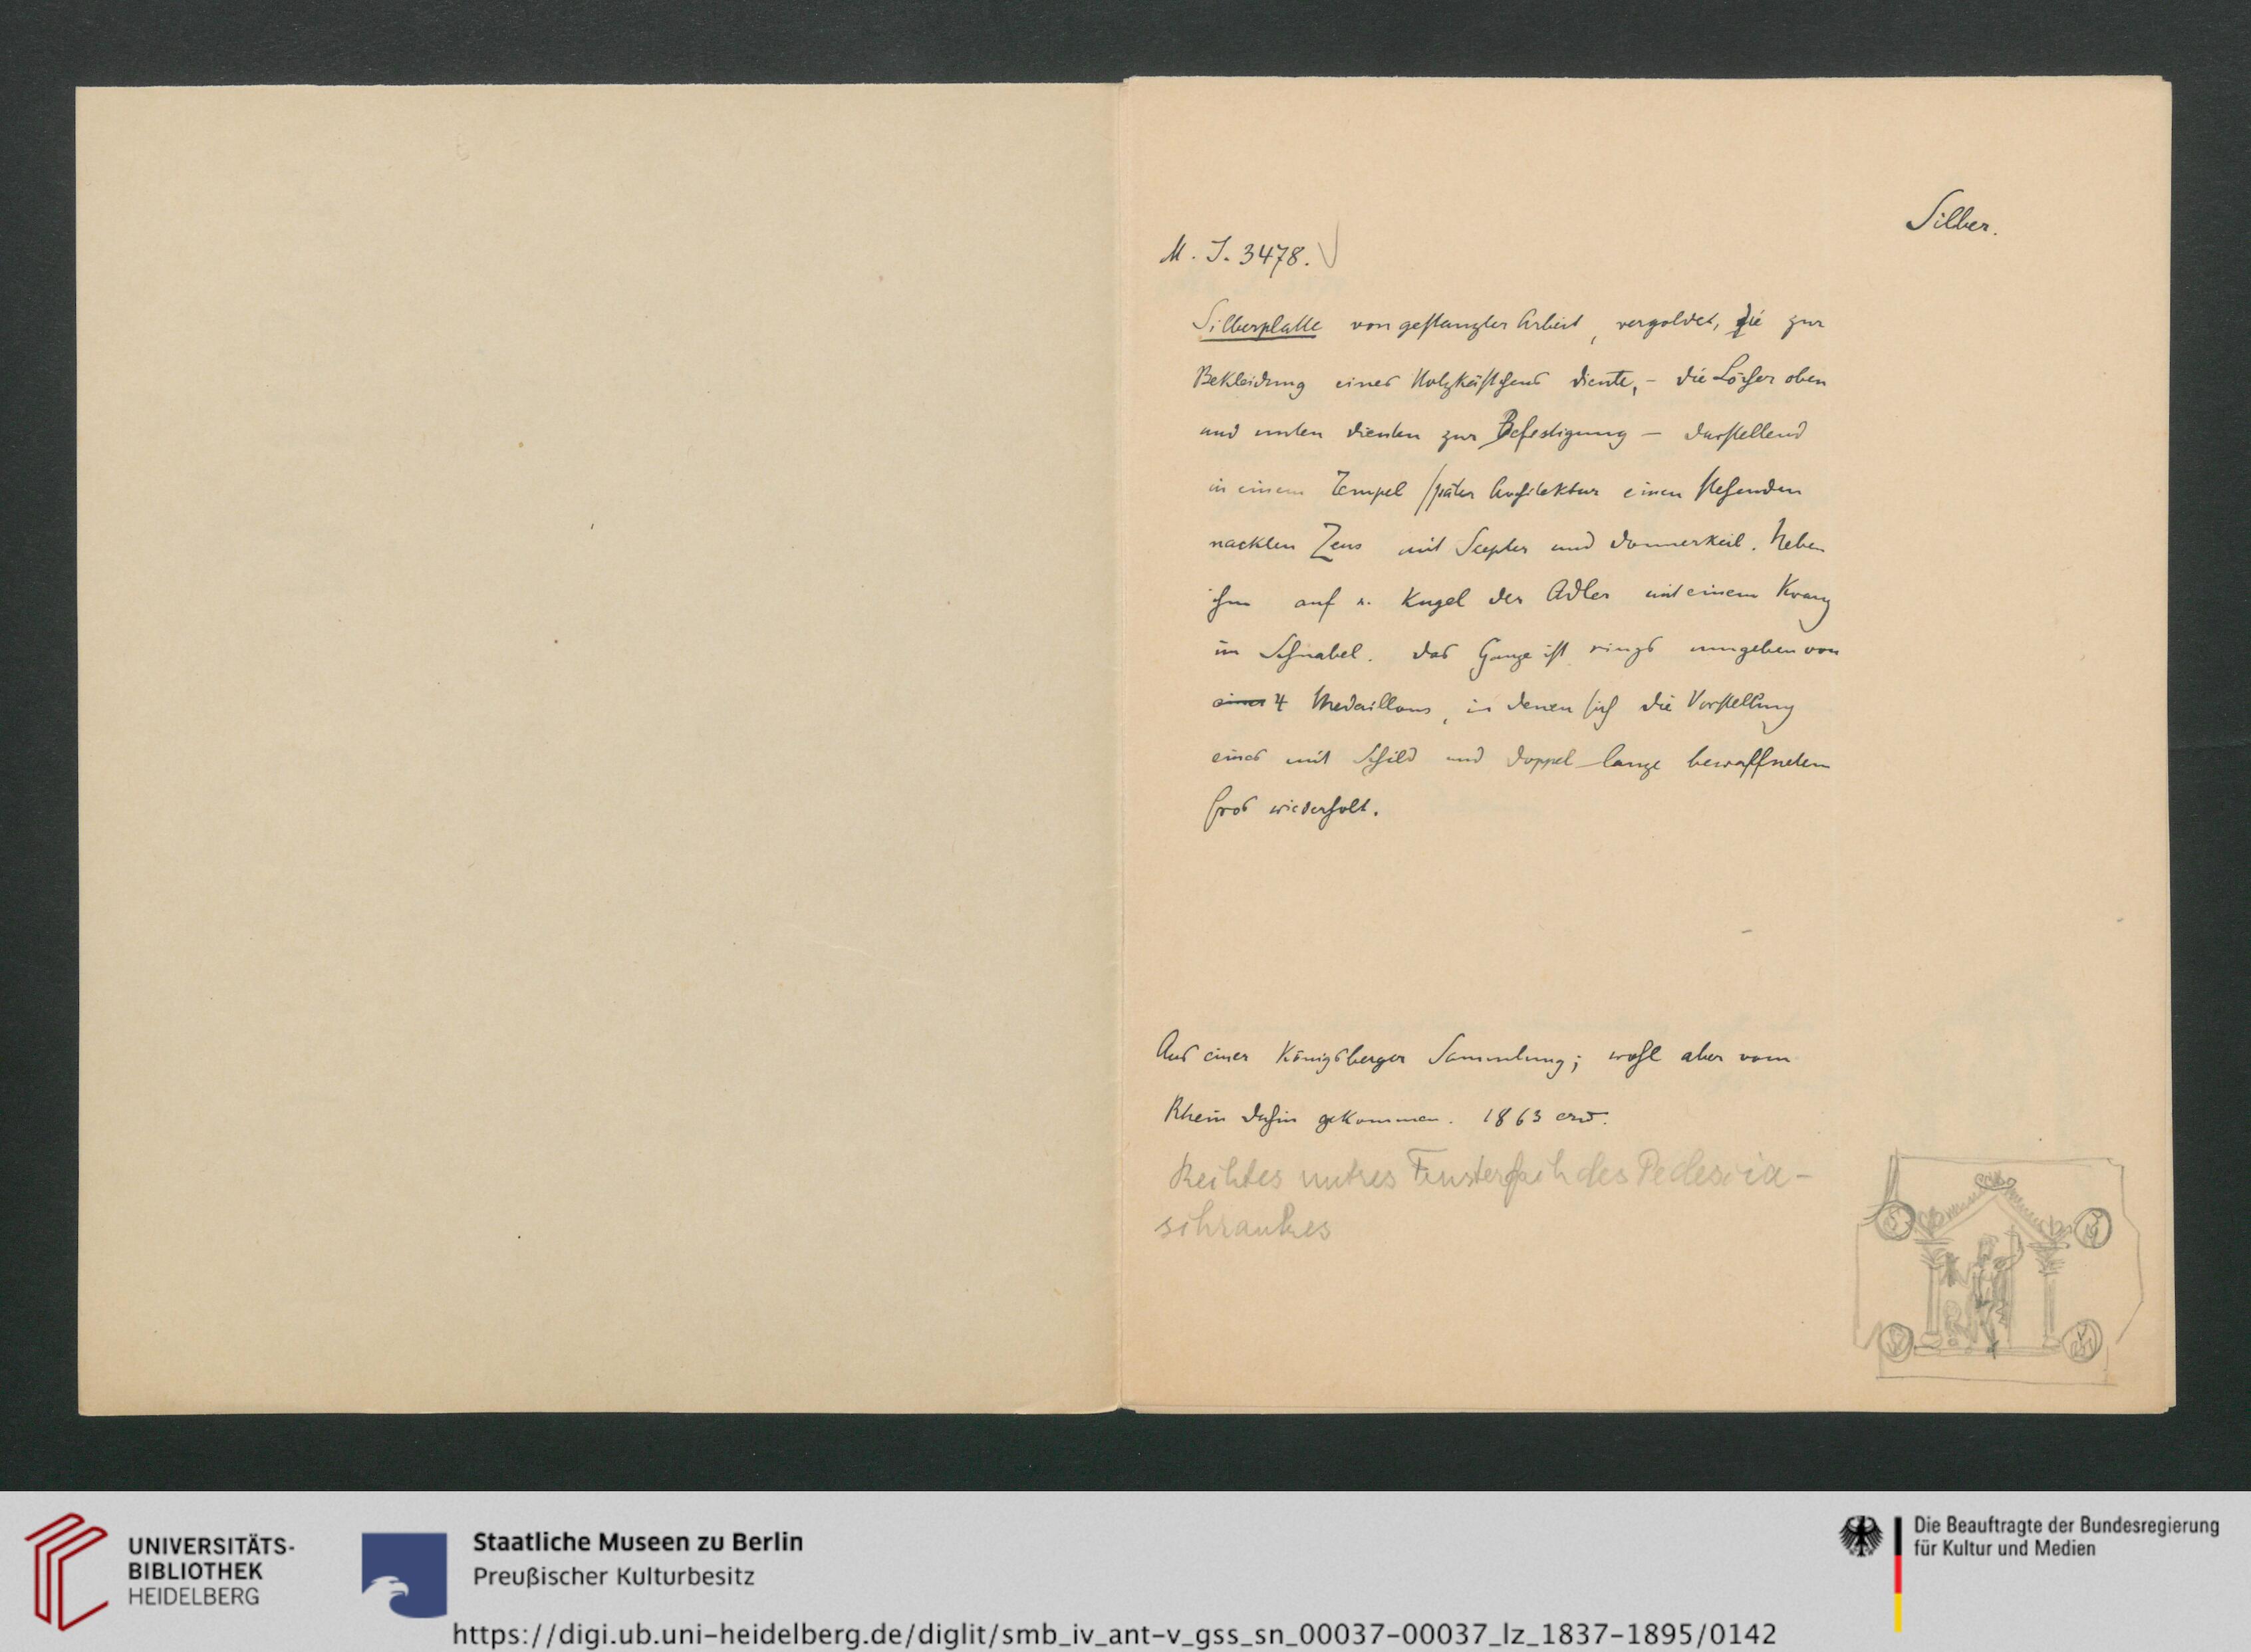 Silber.
M. J. 3478.
Silberplatte von gestanzter Arbeit, vergoldet, die zur
Bekleidung eines Holzkästchens diente, – die Löcher oben
und unten dienten zur Befestigung – darstellend
in einem Tempel später Architektur einen stehenden
nackten Zeus mit Scepter und Donnerkeil. Neben
ihm auf r. Kugel der Adler mit einem Kranz
im Schnabel. Das Ganze ist rings umgeben von
einer 4 Medaillons, in denen sich die Vorstellung
eines mit Schild und Doppel-lanze bewaffneten
Eros wiederholt.
Aus einer Königsberger Sammlung; wohl aber vom
Rhein dahin gekommen. 1863 erw.
Rechtes untres Fensterfach des
schrankes
UNIVERSITÄTS-
BIBLIOTHEK
HEIDELBERG
Staatliche Museen zu Berlin
Preußischer Kulturbesitz
Die Beauftragte der Bundesregierung
für Kultur und Medien
https://digi.ub.uni-heidelberg.de/diglit/smb_iv_ant-v_gss_sn_00037-00037_lz_1837-1895/0142